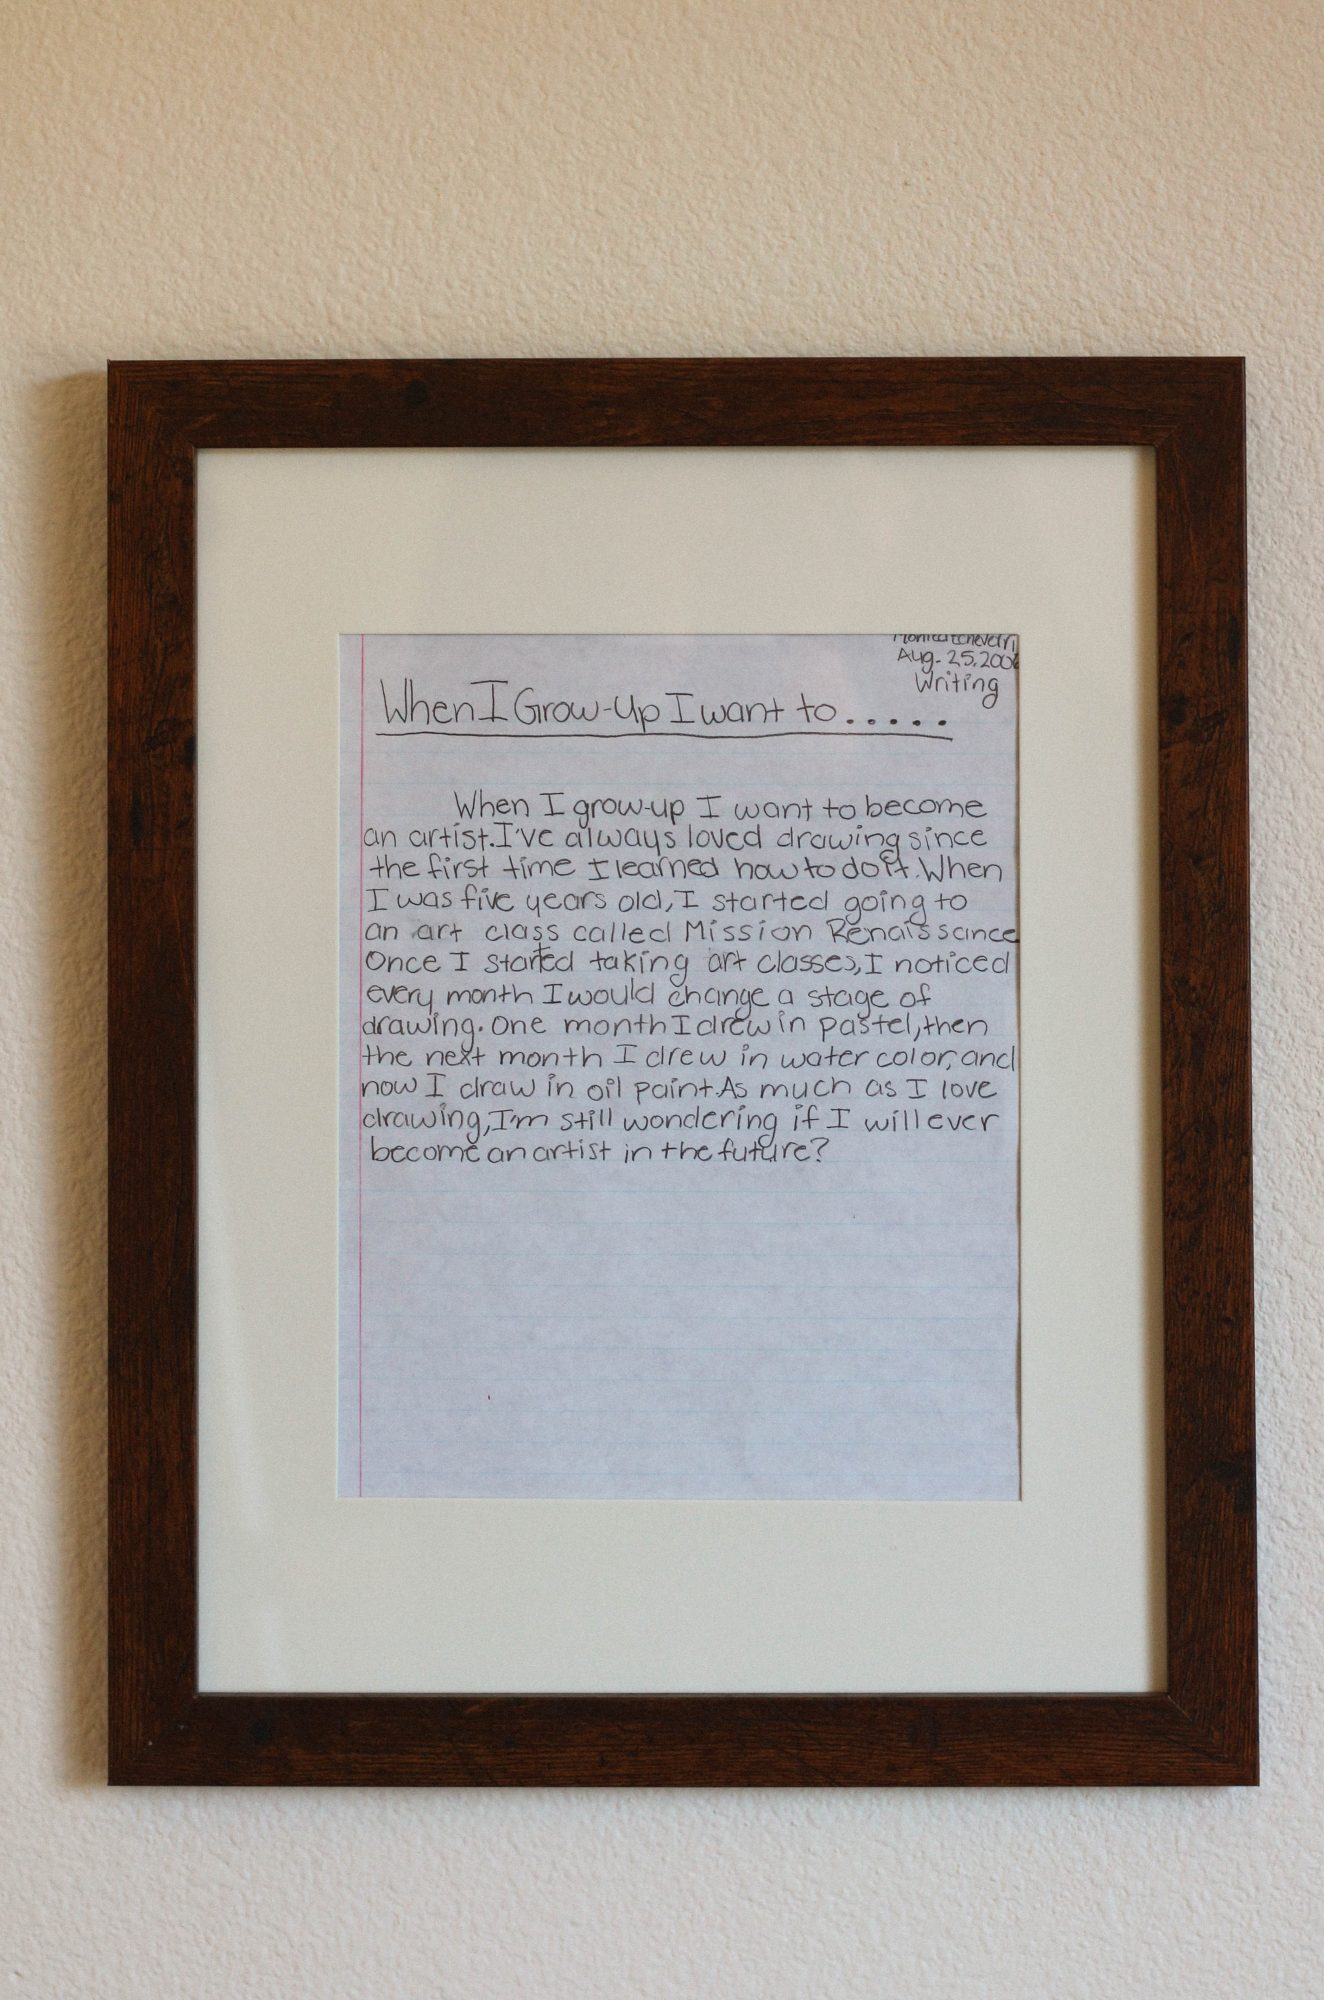 Aug. 25, 200
Writing
When I Grow-Up I want to.....
When I grow-up I want to become
an artist. I've always loved drawing since
the first time I learned how to do it. When
I was five years old, I started going to
an art class called Mission Renaissance
Once I started taking art classes, I noticed
every month I would change a stage of
drawing. One month I drew in pastel, then
the next month I drew in water color, and
now I draw in oil paint. As much as I love
drawing, I'm still wondering if I will ever
become an artist in the future?